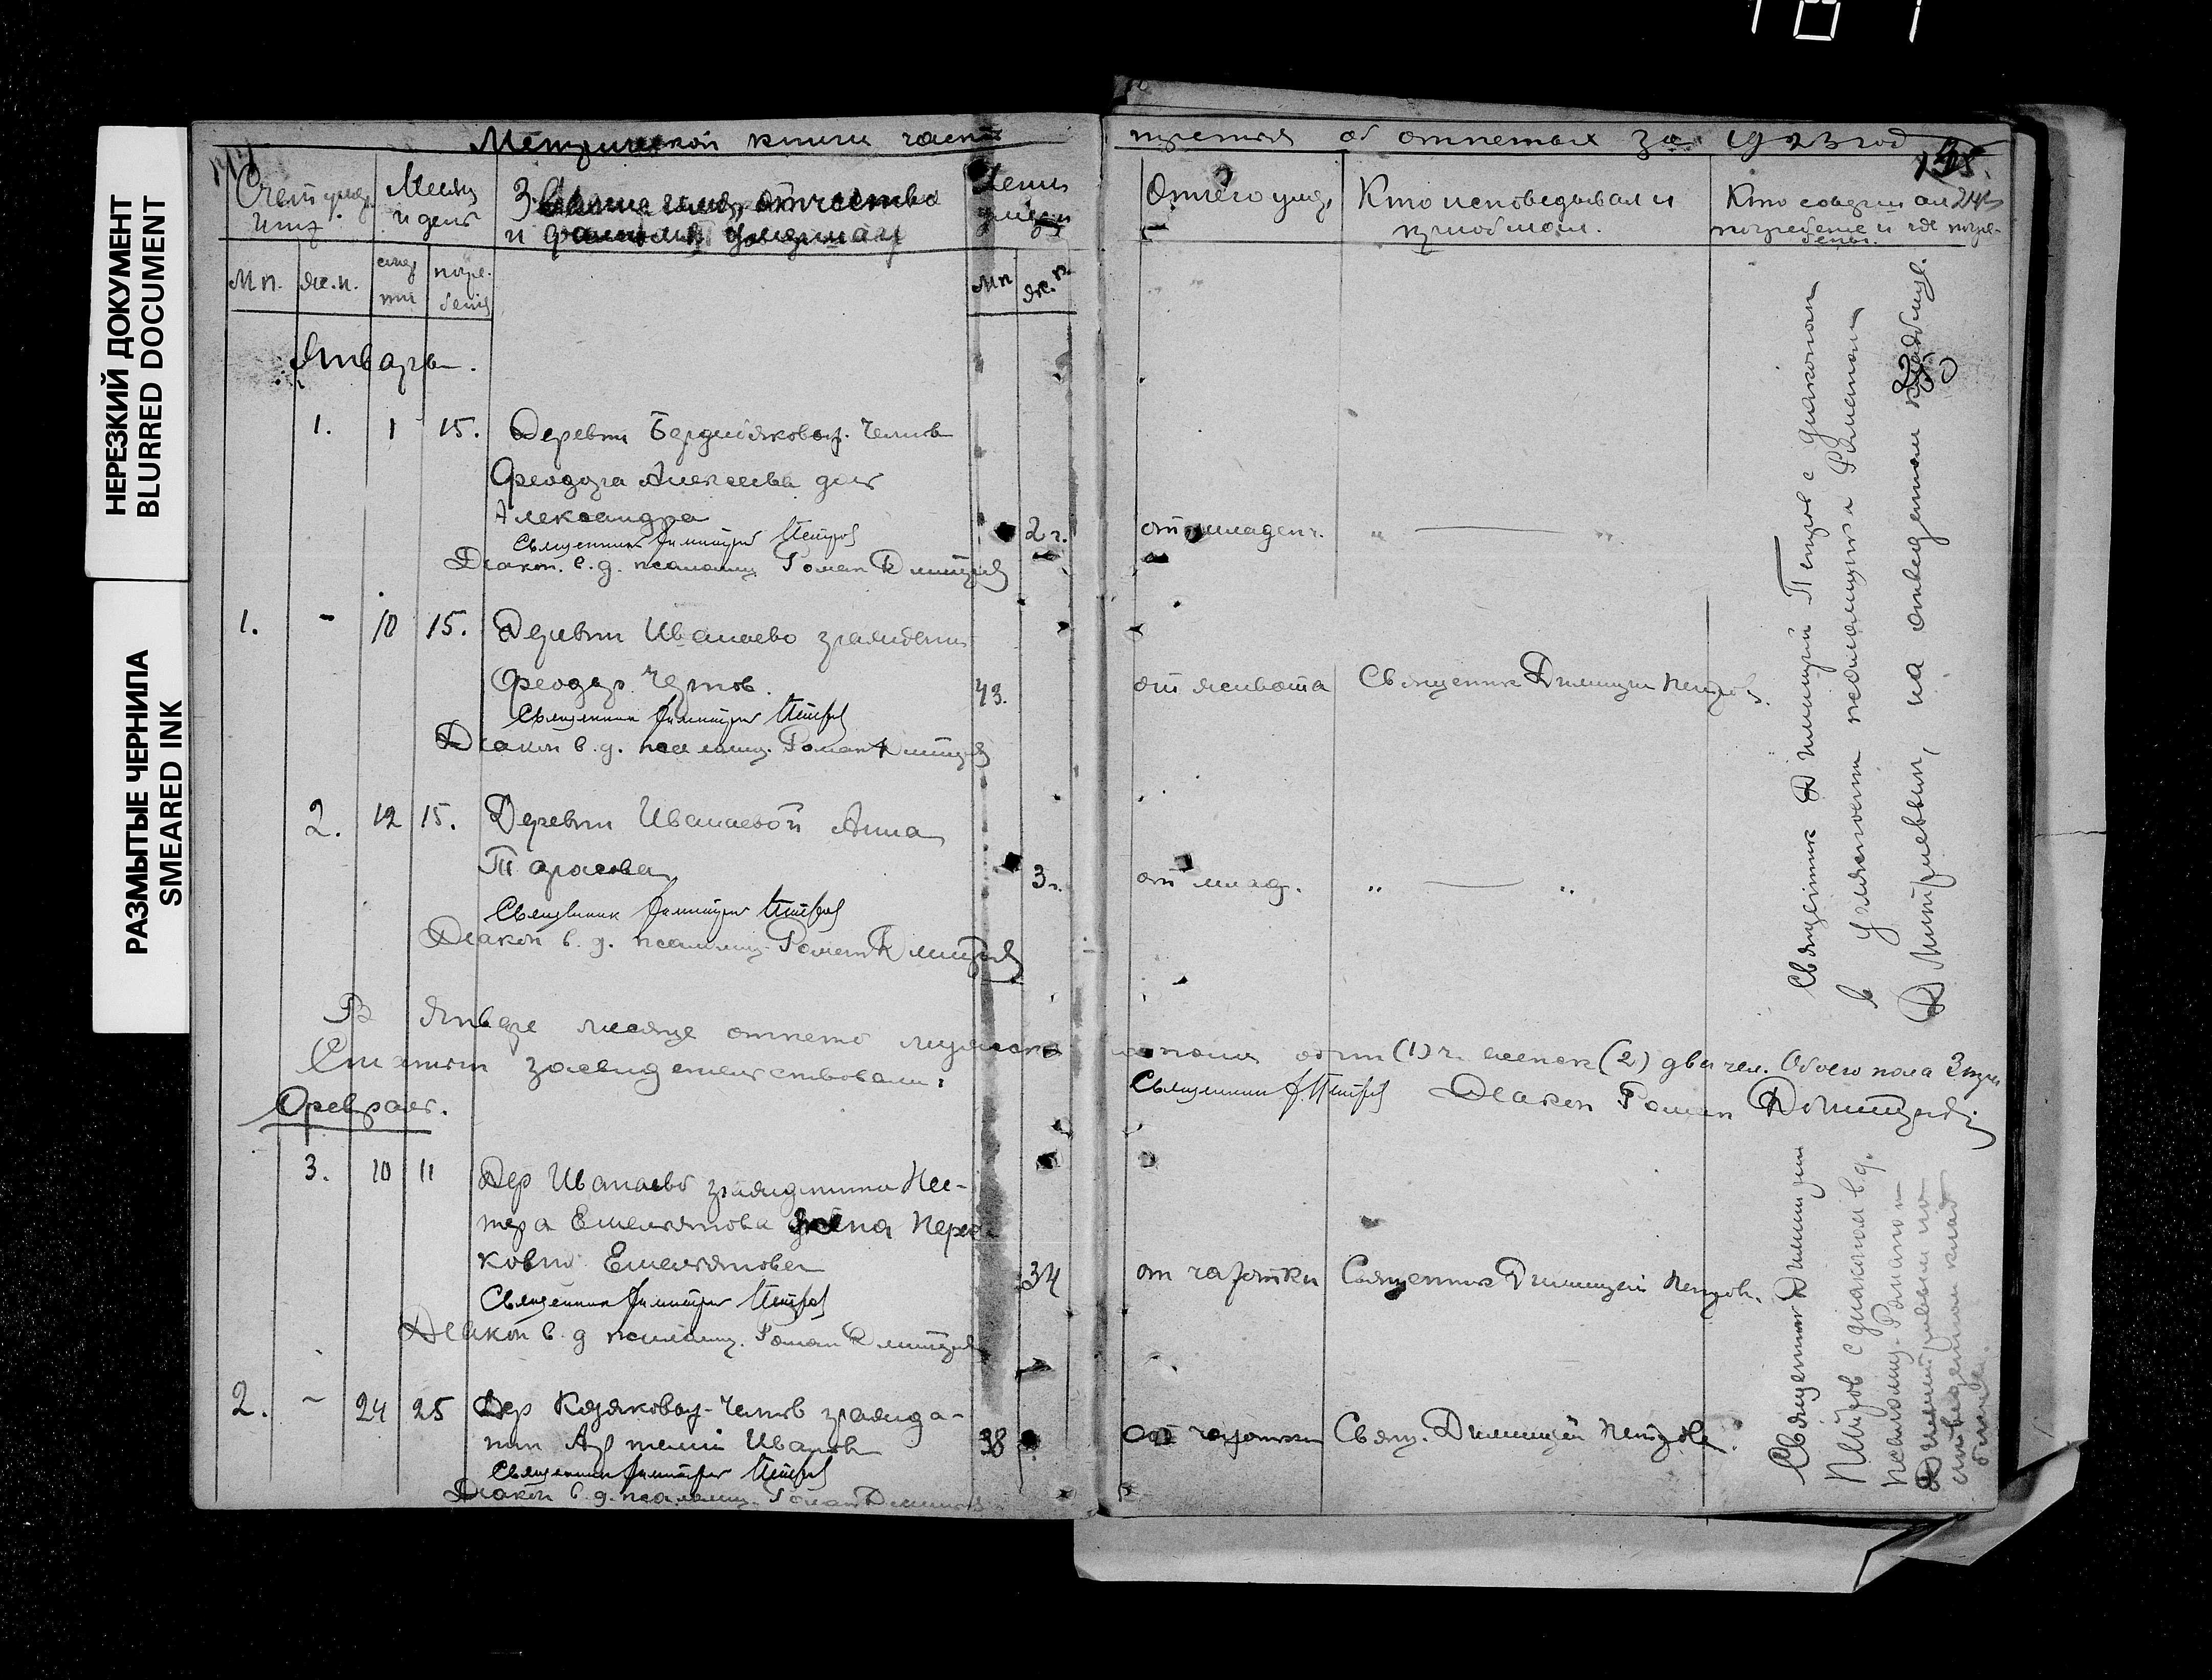 НЕРЕЗКИЙ ДОКУМЕНТ
BLURRED DOCUMENT
РАЗМЫТЫЕ ЧЕРНИЛА
SMEARED INK
Метрической книги части третья об отпетых за 1923 год
Счет умер.
Месяц и день
Звание, имя, отчество
и фамилия умерших
Лета
От чего умер.
Кто исповедывал и
приобщал.
Кто совершил
погребение и где погре-
бены.
М п. ж. п. погре-
бения
М п ж. п.
Январь.
1. 1 15. Деревни
Феодора Алексеева дочь
Александра 2 г. от младенч. „ — „
Священник Димитрий Петров
Диакон. в. д. псаломщ. Роман Дмитриев
1. - 10 15. Деревни Иванаево гражданин
Феодор 43. от живота Священник Димитрий Петров.
Священник Димитрий Петров
Диакон в. д. псаломщ. Роман Дмитриев
2. 12 15. Деревни Иванаевой Анна
Тарасова 3 г. от млад. „ — „
Священник Димитрий Петров
Диакон в. д. псаломщ. Роман Дмитриев
Священник Димитрий Петров с диаконом
в должности псаломщика Романом
Дмитриевым, на отведенном кладбище.
В Январе месяце отпето мужска пола один (1) ч. женск (2) два чел. Обоего пола 3
засвидетельствовали: Священник Д. Петров Диакон Роман Дмитриев
Февраль.
3. 10 11 Дер Иванаево гражданина Нес-
тера Емельянова жена
Емельянова 34 от чахотки Священник Димитрий Петров.
Священник Димитрий Петров
Диакон в. д псаломщ. Роман Дмитриев
2. - 24 25 Дер гражда-
нин Артемий Иванов 38 от чахотки Свящ. Димитрий Петров.
Священник Димитрий Петров
Диакон в. д. псаломщ. Роман Дмитриев
Священник Димитрий
Петров с диаконом в. д.
псаломщ. Романом
Дмитриевым на
отведенном клад
бище.